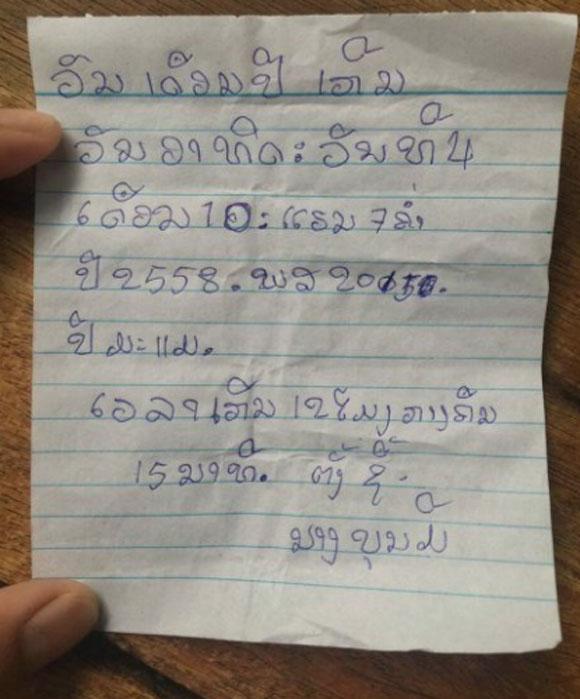 ວັນ ເດືອນປີ ເກີນ
ວັນອາທິດ: ວັນທີ 4
ເດືອນ 10: ແຮມ 7 ຄ່ຳ
ປີ 2558. ພສ 2015.
ປີ ມະແມ.
ເວລາເກີນ 12 ໂມງ ກາງຄືນ
15 ນາທີ. ຕັ້ງ ຊື່.
ນາງ ບຸນມີ